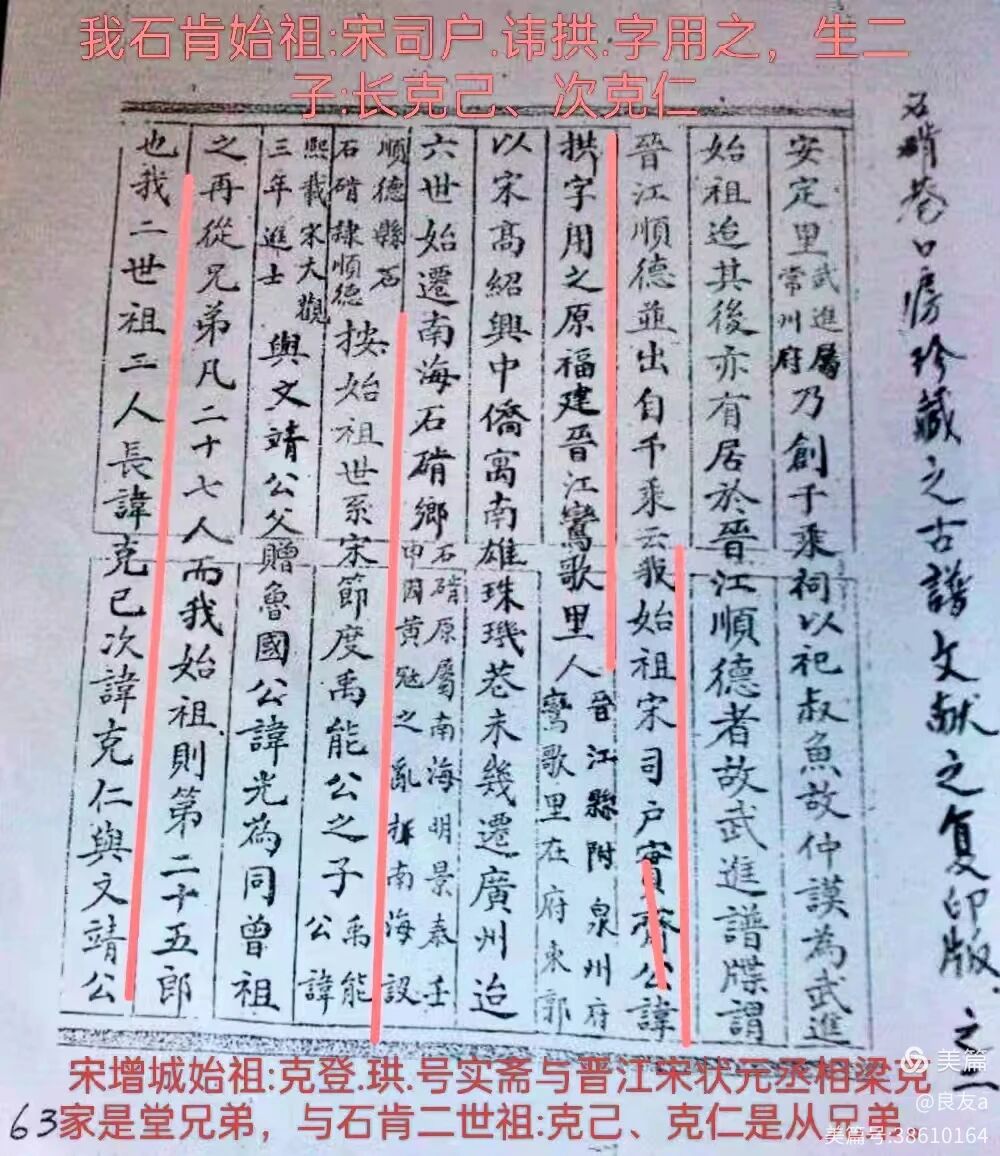 我石肯始祖:宋司户.讳拱.字用之，生二
子:长克己、次克仁
石碏巷口房珍藏之古譜文献之复印版.之一
安定里
武進屬
常州府
乃創千乘祠以祀叔魚故仲謨為武進
始祖迨其後亦有居於晉江順德者故武進譜牒謂
晉江順德並出自千乘云我始祖宋司户實齋公諱
拱字用之原福建晉江鸞歌里人
晉江縣附泉州府
鸞歌里在府東郭
以宋高紹興中僑寓南雄珠璣巷未幾遷廣州迨
六世始遷南海石碏鄉
石碏原屬南海明景泰壬
申因黄冦之亂拆南海設
順德縣石
石碏隷順德
按始祖世系宋節度禹能公之子
禹能
公諱
熙載宋大觀
三年進士
與文靖公父贈魯國公諱光為同曾祖
之再從兄弟凡二十七人而我始祖則第二十五郎
也我二世祖二人長諱克己次諱克仁與文靖公
宋增城始祖:克登.珙.号实斋与晋江宋状元丞相梁克
家是堂兄弟，与石肯二世祖:克己、克仁是从兄弟
63
美篇
@良友a
美篇号:38610164